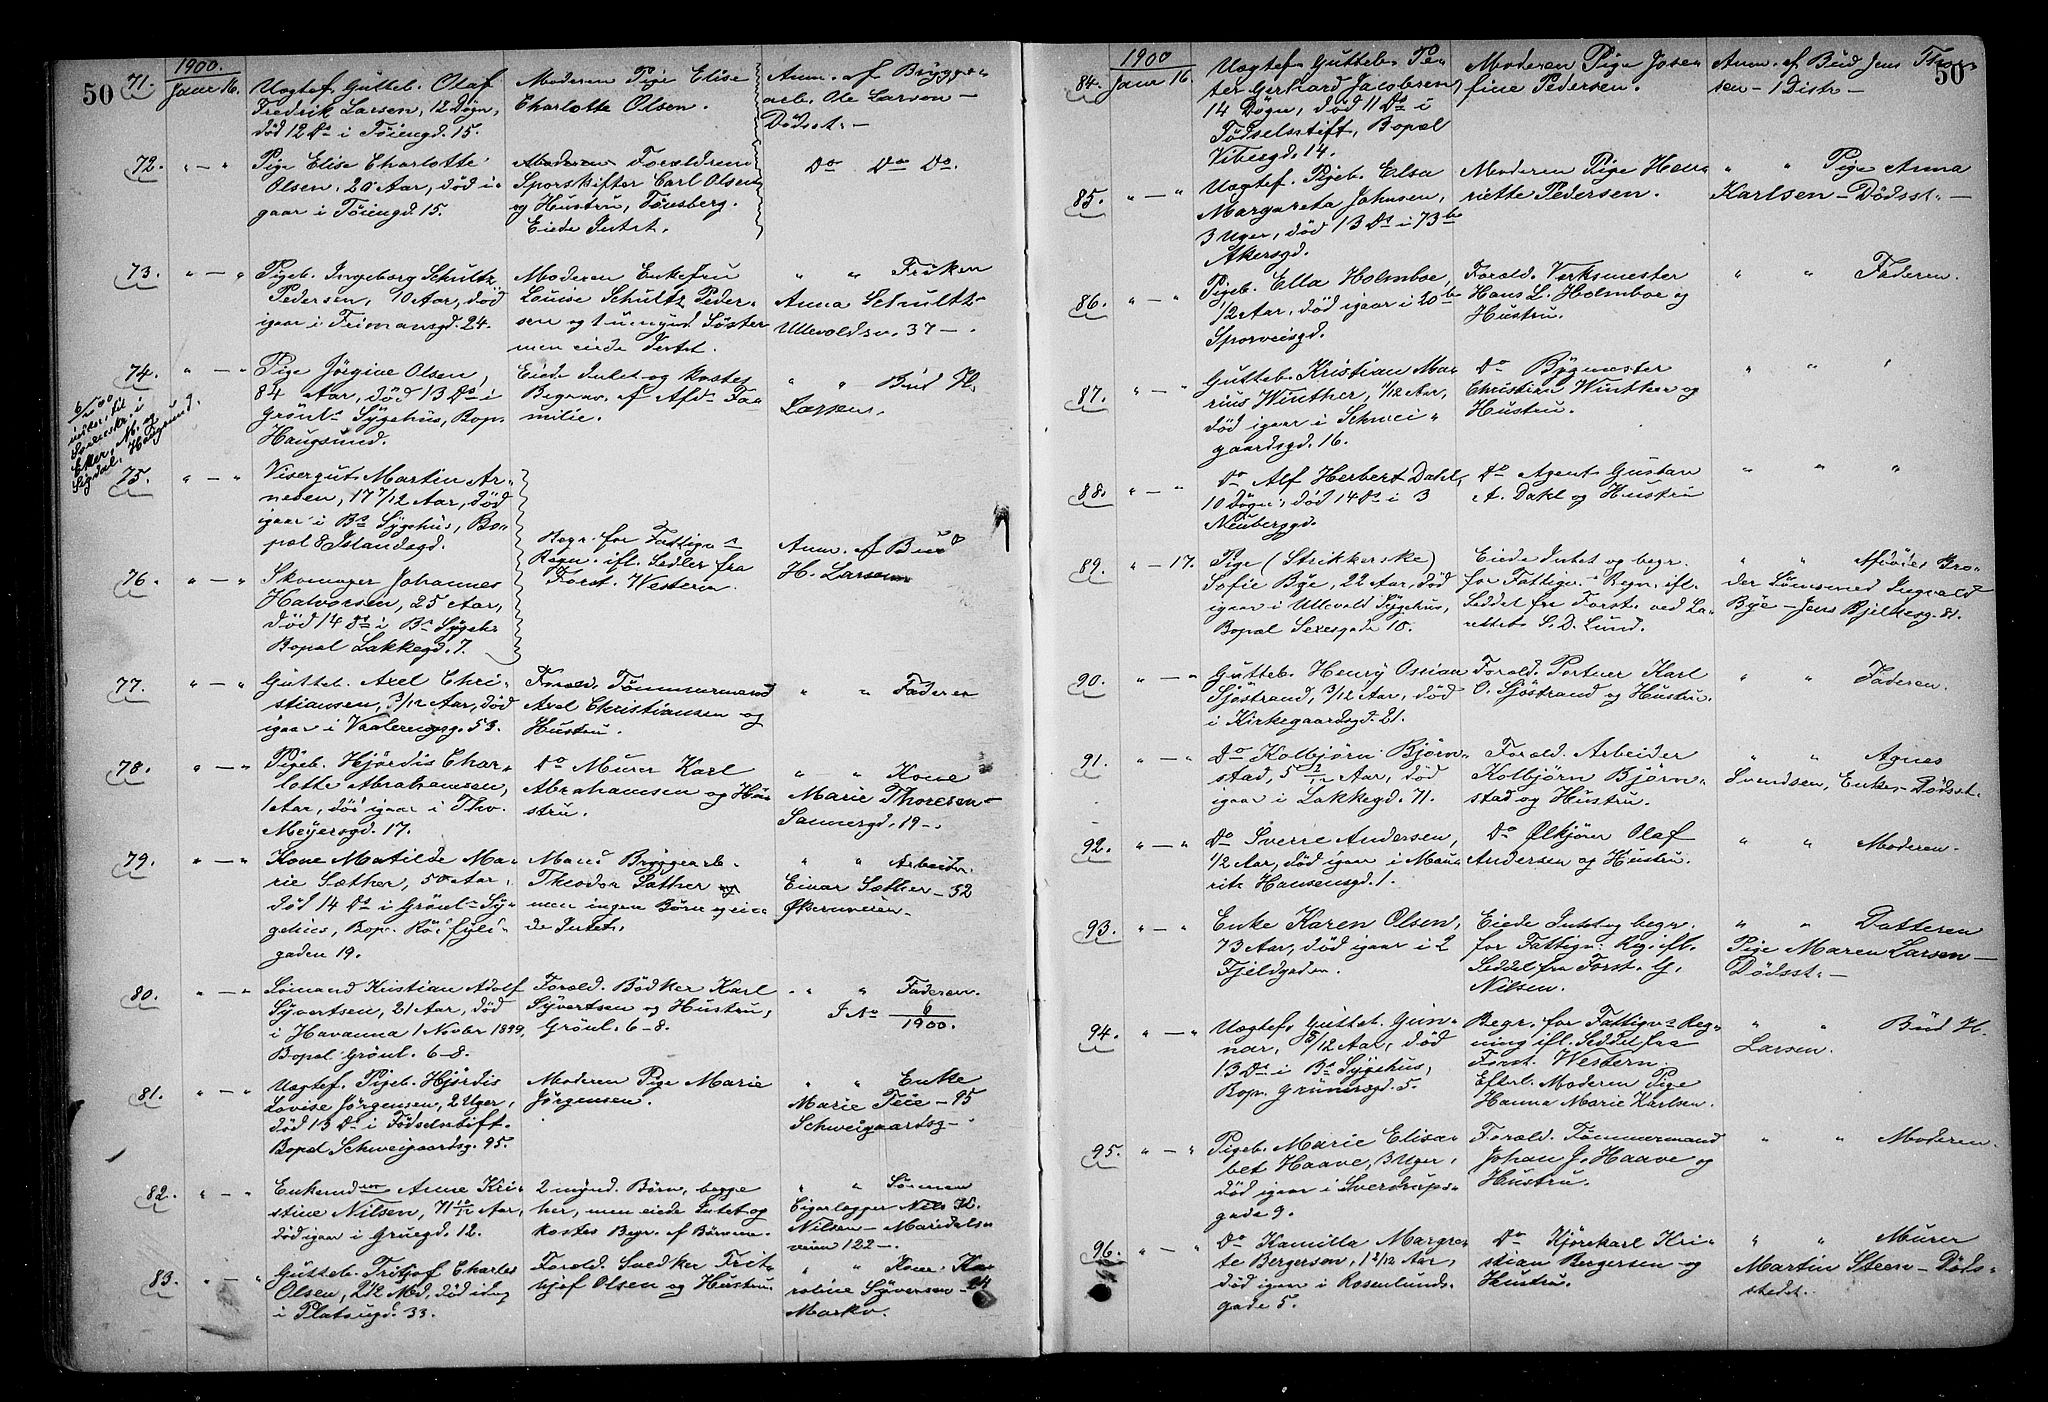 50
1900.
71. Janr 16.
Uægtef. Gutteb. Olaf
Fredrik Larsen, 12 Døgn,
död 12 Ds i Töiengd. 15.
Moderen Pige Elise
Charlotte Olsen.
Anm. af Brygge-
arb. Ole Larsen –
Dödsst. –
72. " — "
Pige Elise Charlotte
Olsen, 20 Aar, död i-
gaar i Töiengd. 15.
Moderen Forældrene
Sporskifter Carl Olsen
og Hustru, Tönsberg.
Eiede Intet.
Do Do Do.
73. " — "
Pigeb. Ingeborg Schultz
Pedersen, 10 Aar, död
igaar i Frimansgd. 24.
Moderen Enkefru
Louise Schultz Peder-
sen og 1 umynd. Söster
men eiede Intet.
" " Fröken
Anna Schultz –
Ullevoldsv. 37 –.
74. " — "
Pige Jörgine Olsen,
84 Aar, död 13 Ds i
Grönl.s Sygehus, Bop.
Haugsund.
Eiede Intet og kostes
Begrav. af Afd. Fa-
milie.
" " Bud H.
Larsen.
Eker, M. og
Sigdal, Haugsund.
75. " — "
Visergut Martin Ar-
nesen, 17 7/12 Aar, död
igaar i Bs Sygehus, Bo-
pæl 8 Islandsgd.
Begr. for Fattigv.s
Regn. ifl. Sedler fra
Forst. Western
Anm. af Bud
H. Larsen
76. " — "
Skomager Johannes
Halvorsen, 25 Aar,
död 14 Ds i Bs Sygeh.
Bopæl Lakkegd. 7.
77. " — "
Gutteb. Axel Chri-
stiansen, 3/12 Aar, död
igaar i Vaalerengg. 53.
Foræld. Tömmermand
Axel Christiansen og
Hustru.
" " Faderen
78. " — "
Pigeb. Hjördis Char-
lotte Abrahamsen,
1 Aar, död igaar i Tho.
Meyersgd. 17.
Do Murer Karl
Abrahamsen og Hu-
stru.
" " Kone
Marie Thoresen –
Sannergd. 19 –.
79. " — "
Kone Matilde Ma-
rie Sæther, 50 Aar,
död 14 Ds i Grönl.s Sy-
gehus, Bop. Röifyli-
gaden 19.
Mand Bryggearb.
Theodor Sæther
men ingen Börn og ei-
de Intet.
" " Arbeider
Einar Sæther – 32
Økernveien –
80. " — "
Sömand Kristian Adolf
Syvertsen, 21 Aar, död
i Havanna 1 Novbr 1899,
Bopæl Grönl. 6-8.
Foræld. Bödker Karl
Syvertsen og Hustru,
Grönl. 6-8.
" " Faderen.
J No 6/1900.
81. " — "
Uægtef. Pigeb. Hjördis
Lovise Jörgensen, 2 Uger,
död 13 Ds i Födselsstift.
Bopæl Schweigaardsg. 95.
Moderen Pige Marie
Jörgensen.
" " Enke
Marie Teie – 95
Schweigaardsg –.
82. " — "
Enkemden Anne Kri-
stine Nilsen, 71 10/12 Aar,
död igaar i Gruegd. 12.
2 mynd. Börn, begge
her, men eiede Intet og
kostes Begr. af Börnene.
" " Sönnen
Cigarlægger Nils K.
Nilsen – Maridals-
veien 122 –.
83. " — "
Gutteb. Fritjof Charles
Olsen, 2 1/2 Md., död idag
i Platougd. 33.
Foræld. Snedker Frit-
hjof Olsen og Hustru.
" " Kone Ka-
roline Syversen – 24
Markv.
50
1900
84. Janr 16.
Uægtef. Gutteb. Pe-
ter Gerhard Jacobsen,
14 Dögn, död 11 Ds i
Födselsstift, Bopæl
Vibesgd. 14.
Moderen Pige Jose-
fine Pedersen.
Anm. af Bud Jens Thor-
sen – 1 Distr –
85. " — "
Uægtef. Pigeb. Elsa
Margareta Johnsen,
3 Uger, död 13 Ds i 73 b
Akersgd.
Moderen Pige Hen-
riette Pedersen.
" " Pige Anna
Karlsen – Dödsst. –
86. " — "
Pigeb. Ella Holmboe,
1/2 Aar, död igaar i 20 b
Sporveisgd.
Foræld. Verksmester
Hans L. Holmboe og
Hustru.
" " Faderen.
87. " — "
Gutteb. Kristian Ma-
rius Winther, 11/12 Aar,
död igaar i Schwei-
gaardsgd. 16.
Do Bygmester
Christian Winther og
Hustru.
" " "
88. " — "
Do Alf Herbert Dahl,
10 Dögn, död 14 Ds i 3
Neuberggd.
Do Agent Gustav
A. Dahl og Hustru
" " "
89. " — 17.
Pige (Strikkerske)
Sofie Bye, 22 Aar, död
igaar i Ullevold Sygehus,
Bopæl Sexesgade 18.
Eiede Intet og begr.
for Fattigv.s Regn. ifl.
Seddel fra Forst. ved La-
rettet S. D. Lund.
" " Afdödes Bro-
der Lönsmed Ingvald
Bye – Jens Bjelkesg. 81.
90. " — "
Gutteb. Henry Ossian
Sjöstrand, 3/12 Aar, död
i Kirkegaardsgd. 21.
Foræld. Portner Karl
O. Sjöstrand og Hustru.
" " Faderen.
91. " — "
Do Kolbjörn Björn-
stad, 5 2/12 Aar, död
igaar i Lakkegd. 71.
Foræld. Arbeider
Kolbjörn Björn-
stad og Hustru.
" " Agnes
Svendsen, Enke – Dödsst.
92. " — "
Do Sverre Andersen,
1/2 Aar, död igaar i Mau-
ritz Hansensgd. 1.
Do Ølkjörer Olaf
Andersen og Hustru.
" " Moderen.
93. " — "
Enke Karen Olsen,
73 Aar, död igaar i 2
Fjeldgaden.
Eiede Intet og begr.
for Fattigv. Reg. ifl.
Seddel fra Forst. G.
Nilsen.
" " Datteren
Pige Maren Larsen –
Dödsst. –
94. " — "
Uægtef. Gutteb. Gun-
nar, 8/12 Aar, död
13 Ds i Bs Sygehus,
Bop. Grünersgd. 5.
Begr. for Fattigv.s Reg-
ning ifl. Seddel fra
Forst. Western.
Efterl. Moderen Pige
Hanna Marie Karlsen.
" " Bud H.
Larsen.
95. " — "
Pigeb. Marie Elisa-
bet Haave, 3 Uger,
död igaar i Sverdrups-
gade 9.
Foræld. Tömmermand
Johan J. Haave og
Hustru.
" " Moderen.
96. " — "
Do Kamilla Margre-
te Bergersen, 1 2/12 Aar,
död igaar i Rosenlunds-
gade 5.
Do Kjörekarl Kri-
stian Bergersen og
Hustru.
" " Murer
Martin Steen – Döds-
stedet.